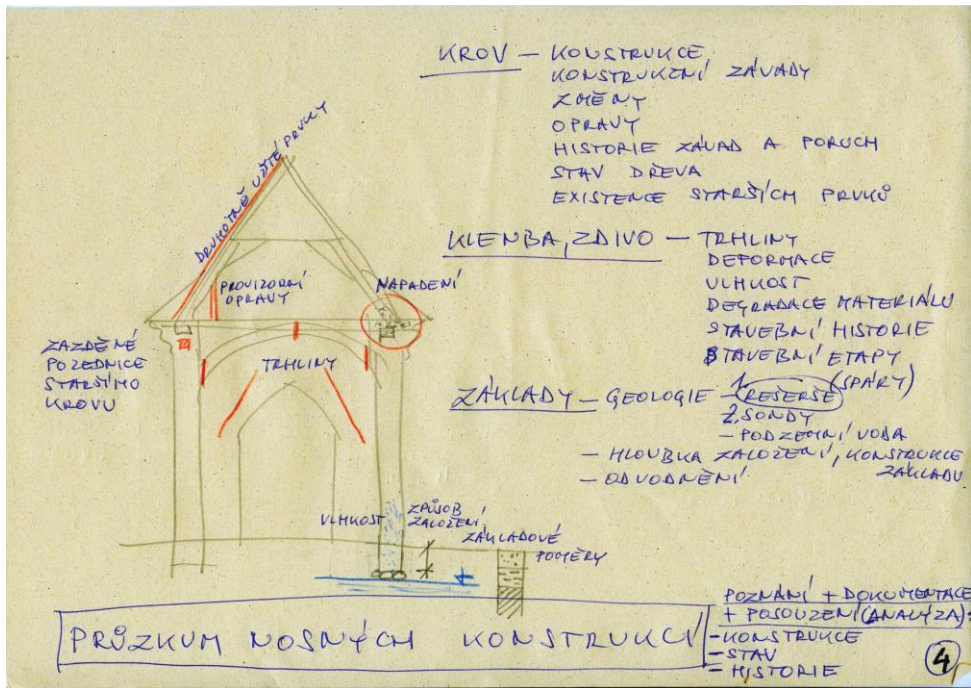 KROV – KONSTRUKCE
KONSTRUKČNÍ ZÁVADY
ZMĚNY
OPRAVY
HISTORIE ZÁVAD A PORUCH
STAV DŘEVA
EXISTENCE STARŠÍCH PRVKŮ
KLENBA, ZDIVO – TRHLINY
DEFORMACE
VLHKOST
DEGRADACE MATERIÁLU
STAVEBNÍ HISTORIE
STAVEBNÍ ETAPY
(SPÁRY)
ZÁKLADY – GEOLOGIE – 1. REŠERŠE
2. SONDY
– PODZEMNÍ VODA
– HLOUBKA ZALOŽENÍ, KONSTRUKCE
ZÁKLADU
– ODVODNĚNÍ
DRUHOTNĚ UŽITÉ PRVKY
PROVIZORNÍ
OPRAVY
NAPADENÍ
ZAZDĚNÉ
POZEDNICE
STARŠÍHO
KROVU
TRHLINY
VLHKOST
ZPŮSOB
ZALOŽENÍ,
ZÁKLADOVÉ
POMĚRY
PRŮZKUM NOSNÝCH KONSTRUKCÍ
POZNÁNÍ + DOKUMENTACE
+ POSOUZENÍ (ANALÝZA):
– KONSTRUKCE
– STAV
– HISTORIE
4